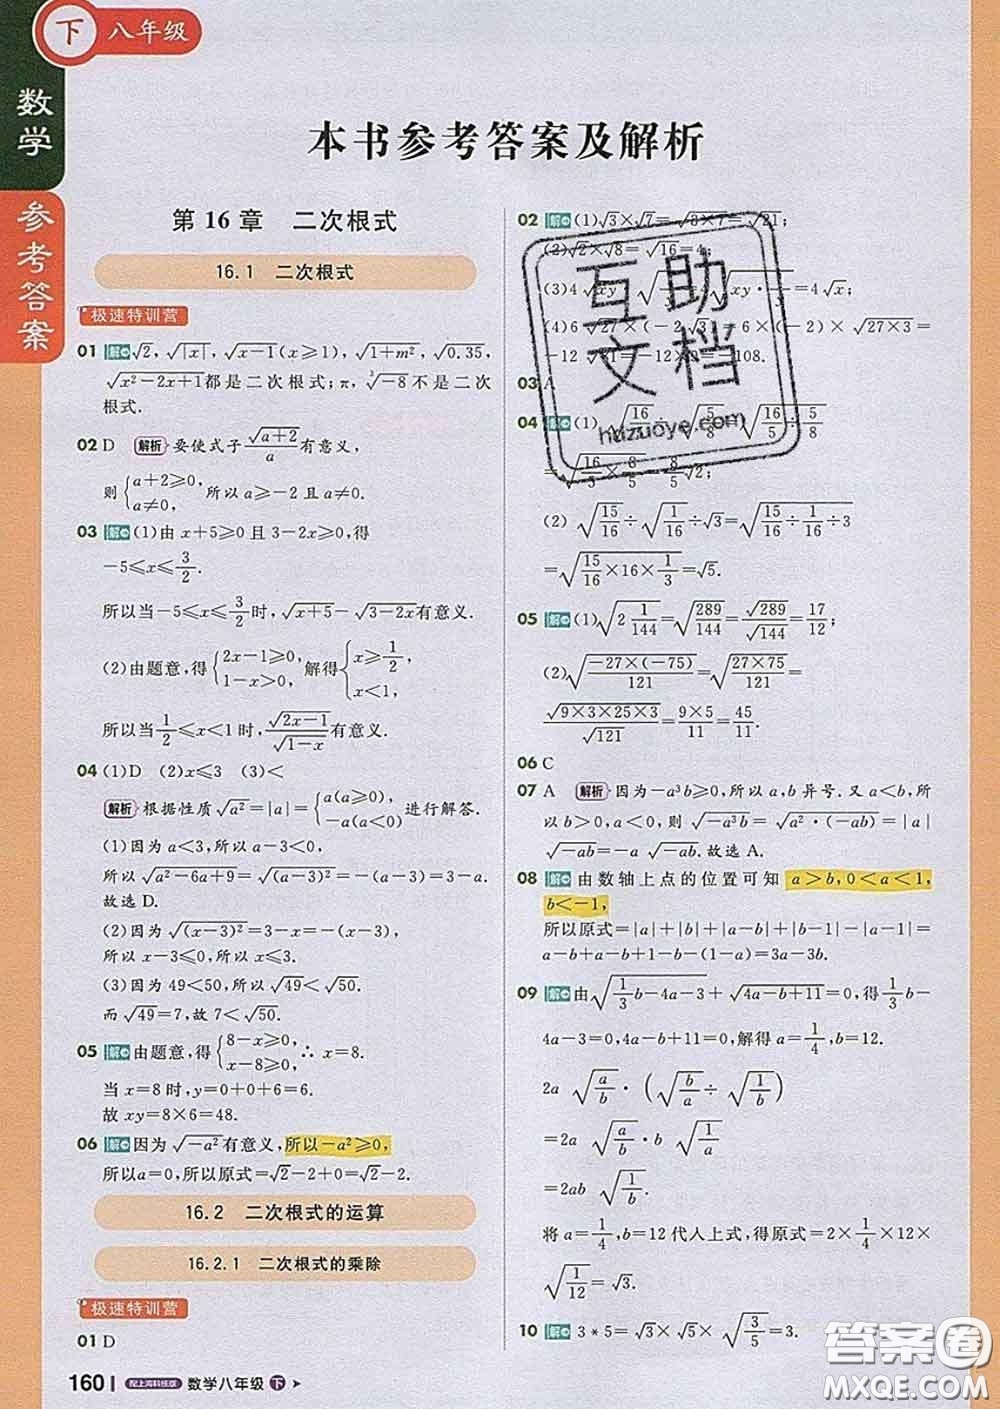 下 八年级
数学
参考答案
本书参考答案及解析
第 16 章 二次根式
16.1 二次根式
极速特训营
01 解 √2, √|x|, √(x-1)(x≥1), √(1+m²), √0.35,
√(x²-2x+1)都是二次根式;π, ³√-8不是二次
根式.
02 D 解析 要使式子√(a+2)/a有意义,
则{a+2≥0, a≠0, 所以 a≥-2 且 a≠0.
03 解 (1)由 x+5≥0 且 3-2x≥0,得
-5≤x≤3/2.
所以当-5≤x≤3/2时, √(x+5)-√(3-2x)有意义.
(2)由题意,得{2x-1≥0, 1-x>0, 解得{x≥1/2, x<1,
所以当1/2≤x<1时, √(2x-1)/√(1-x)有意义.
04 (1)D (2)x≤3 (3)<
解析 根据性质 √a²=|a|={a(a≥0), -a(a<0) 进行解答.
(1)因为 a<3,所以 a-3<0.
所以 √(a²-6a+9)=√(a-3)²=-(a-3)=3-a.
故选 D.
(2)因为 √(x-3)²=3-x=-(x-3),
所以 x-3≤0,所以 x≤3.
(3)因为 49<50,所以 √49<√50.
而 √49=7,故 7<√50.
05 解 由题意,得{8-x≥0, x-8≥0, ∴ x=8.
当 x=8 时,y=0+0+6=6.
故 xy=8×6=48.
06 解 因为 √-a² 有意义,所以-a²≥0,
所以a=0,所以原式=√2-2+0=√2-2.
16.2 二次根式的运算
16.2.1 二次根式的乘除
极速特训营
01 D
02 解 (1)√3×√7=√(3×7)=√21;
(2)√2×√8=√16=4;
(3)4√xy
=4√x;
(4)6√27×(-2√3)
6×(-2)×√(27×3)=
-12
108.
03 A
04 解 (1)√16/5 √5/8 √(16/5÷5/8
=√(16/5×8/5)=8/5√2;
(2) √15/16÷√1/16÷√3=√(15/16÷1/16÷3)
=√(15/16×16×1/3)=√5.
05 解 (1)√(2 1/144)=√(289/144)=√289/√144=17/12;
(2)√(-27×(-75)/121)=√(27×75/121)=
√(9×3×25×3)/√121=9×5/11=45/11.
06 C
07 A 解析 因为-a³b≥0,所以 a,b 异号.又 a<b,所
以 b>0,a<0,则 √-a³b=√(a²·(-ab))=|a|
√-ab=-a √-ab.故选 A.
08 解 由数轴上点的位置可知 a>b,0<a<1,
b<-1,
所以原式=|a|+|b|+|a-b|+|b-1|-|a-1|=
a-b+a-b+1-b-(1-a)=3a-3b.
09 解 由√(1/3b-4a-3)+√(4a-b+11)=0,得1/3b-
4a-3=0,4a-b+11=0,解得 a=1/4,b=12.
2a √a/b·(√b/a÷√1/b)
=2a √a/b·b √1/a
=2ab √1/b.
将 a=1/4,b=12 代人上式,得原式=2×1/4×12×
√1/12=√3.
10 解 3*5=√3×√5×√3/5=3.
互助文档
huzuoye.com
160 配上海科技版 数学八年级 下
答案圈
MXQE.COM